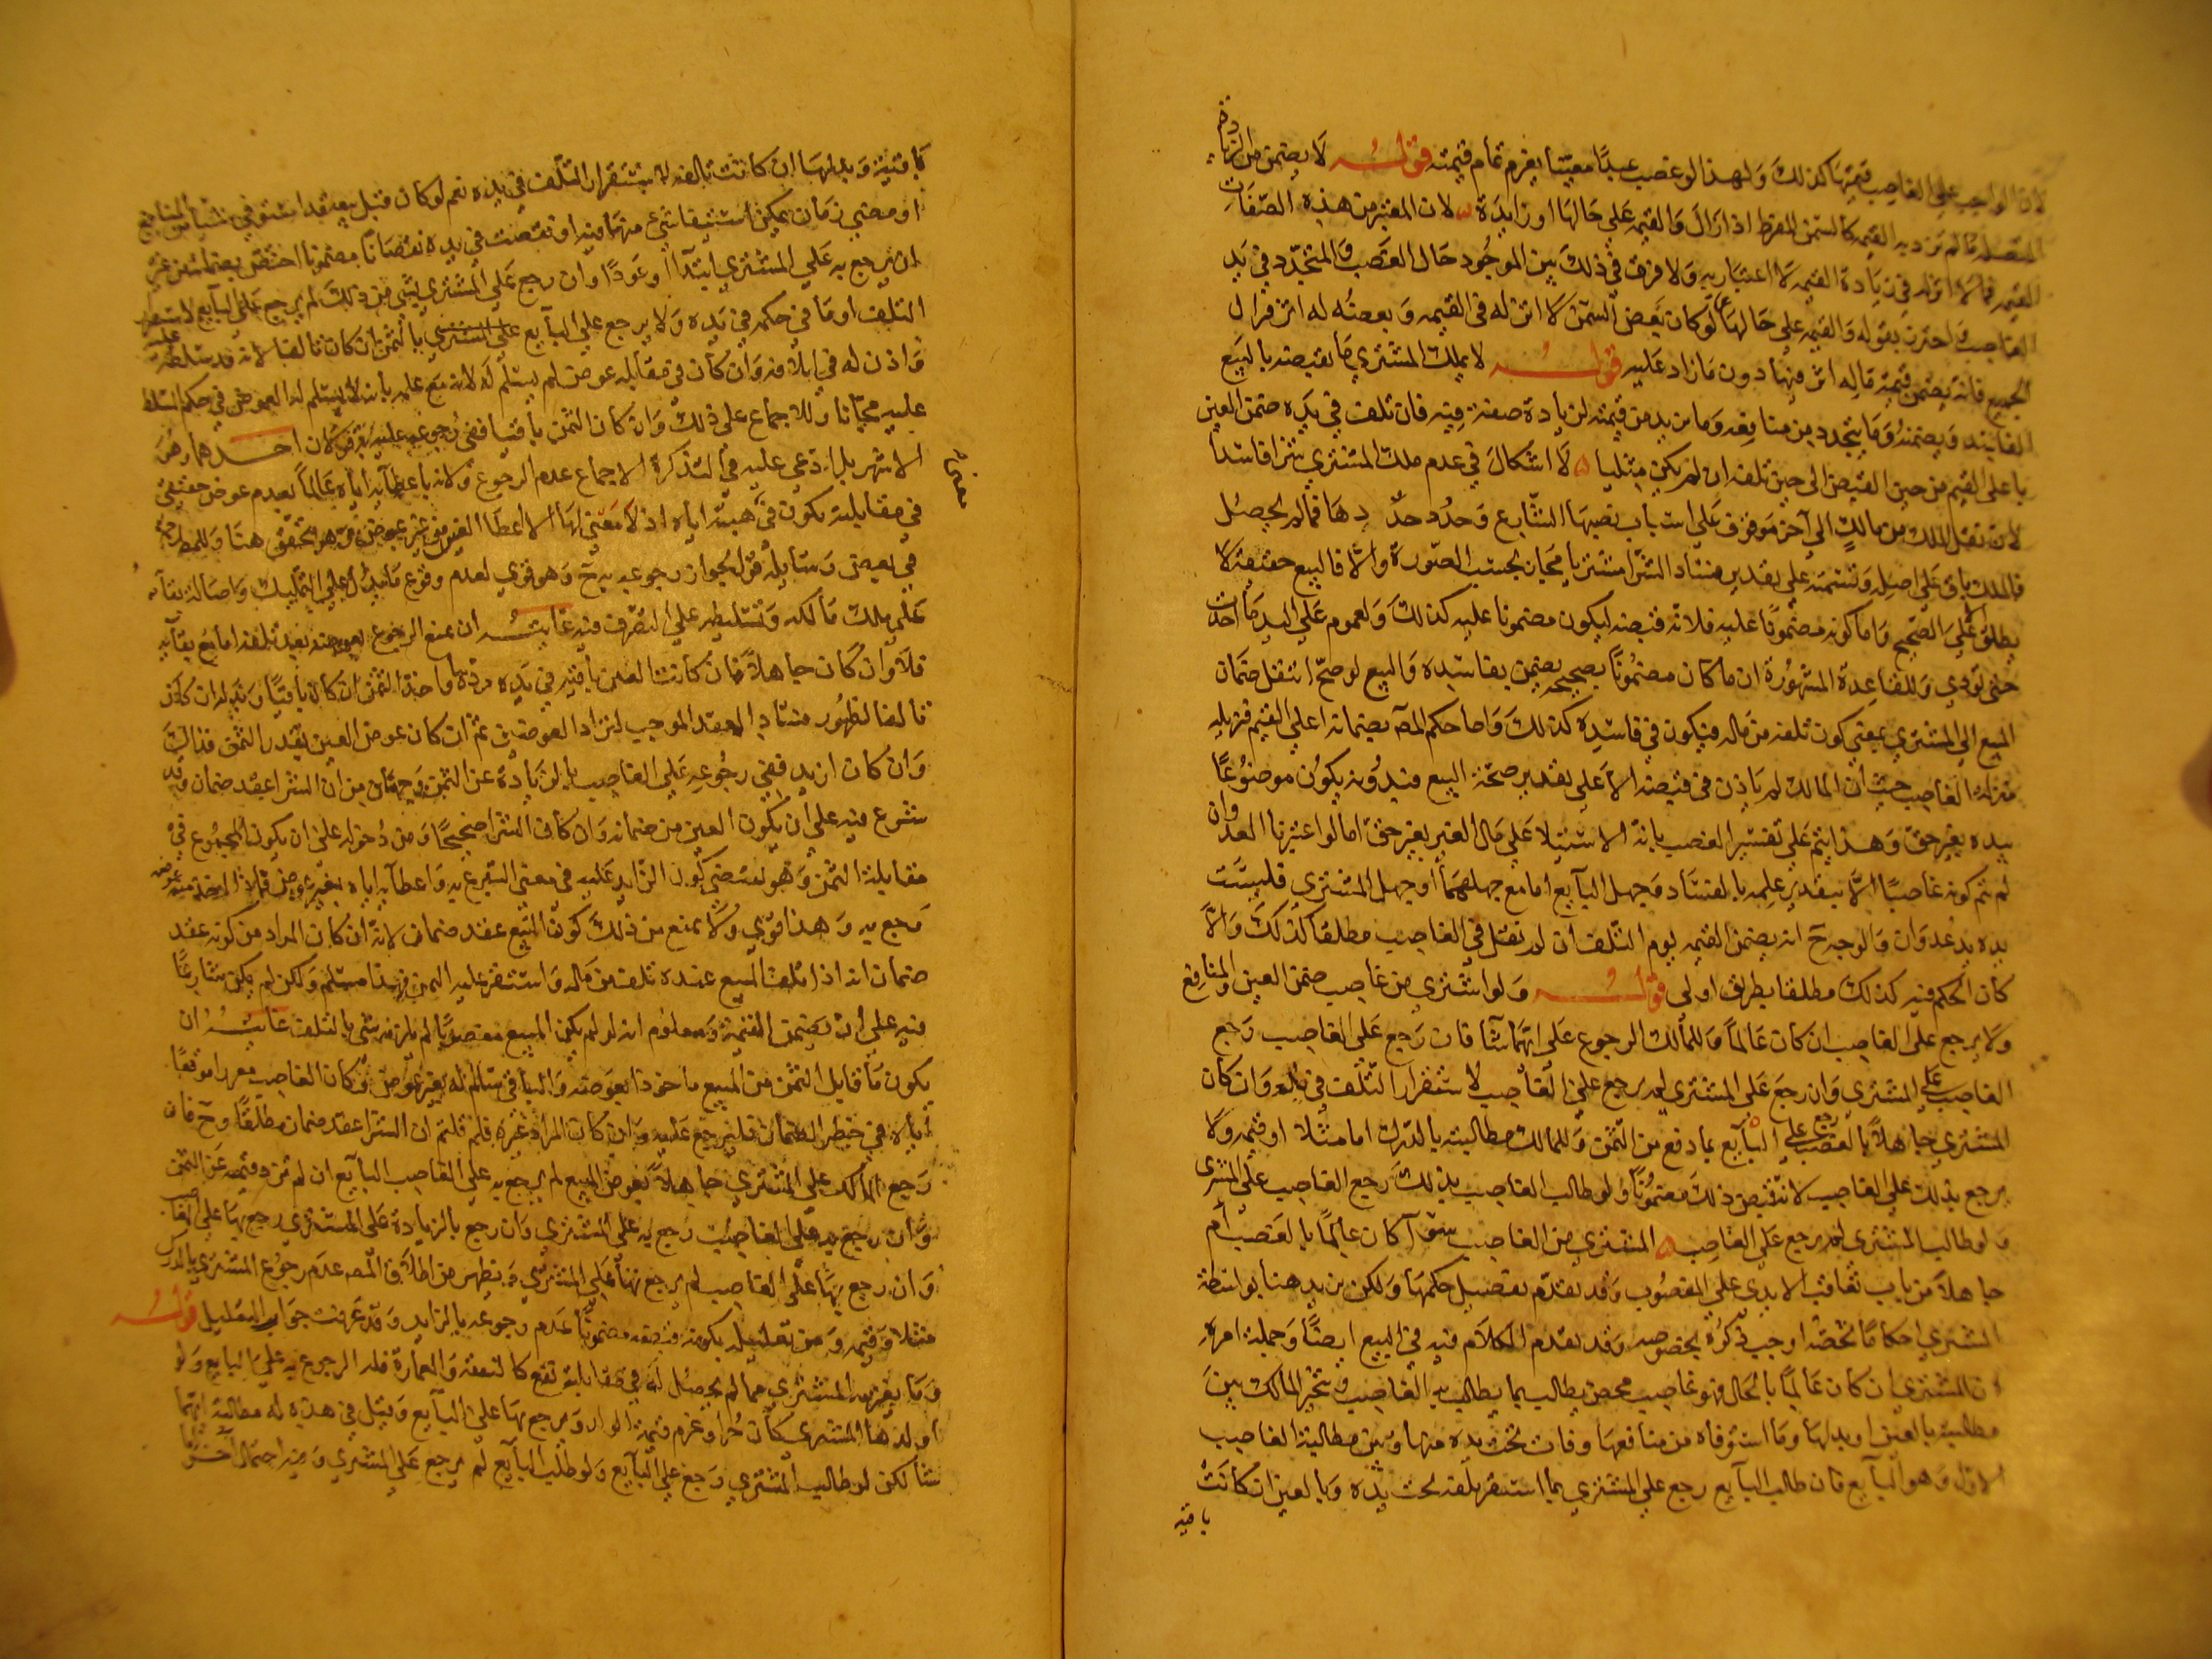 لان الواجب على الغاصب قيمتها كذلك ولهذا لو غصب عبدا معيبا يغرم تمام قيمته قوله لا يضمن من الزيادة
المتصلة ما لم تزد به القيمة كالسمن المفرط اذا زال والقيمة على حالها او زايدة لان المعتبر من هذه الصفات
القيمة فما لا اثر له في زيادة القيمة لا اعتبار به ولا فرق في ذلك بين الموجود حال الغصب والمتجدد في يد
الغاصب واحترز بقوله والقيمة على حالها عما لو كان بعض السمن لا اثر له في القيمة وبعضه له اثر فزال
الجميع فانه يضمن قيمة ما له اثر منها دون ما زاد عليه قوله لا يملك المشتري ما يقبضه بالبيع
الفاسد ويضمنه وما يتجدد من منافعه وما يزيد من قيمته لزيادة صفة فيه فان تلف في يده ضمن العين
باعلى القيم من حين القبض الى حين تلفه ان لم يكن مثليا لا اشكال في عدم ملك المشتري شرا فاسدا
لان نقل الملك من مالك الى آخر موقوف على اسباب نصبها الشارع وحدود حدّ دها فما لم يحصل
فالملك باق على اصله وتسميته على تقدير فساد الشرا مشتريا مجاز بحسب الصورة والا فالبيع حقيقة لا
يطلق الا على الصحيح واما كونه مضمونا عليه فلانه قبضه ليكون مضمونا عليه كذلك ولعموم على اليد ما اخذت
حتى تؤدي وللقاعدة المشهورة ان ما كان مضمونا بصحيحه يضمن بفاسده والبيع لو صح انتقل ضمان
المبيع الى المشتري بمعنى كون تلفه من ماله فيكون في فاسده كذلك واما حكم المص بضمانه اعلى القيم فتنزيله
منزلة الغاصب حيث ان المالك لم ياذن في قبضه الا على تقدير صحة البيع فبدونه يكون موضوعا
بيده بغير حق وهذا يتم على تفسير الغصب بانه الاستيلا على مال الغير بغير حق اما لو اعتبرنا العدوان
لم يتم كونه غاصبا الا بتقدير علمه بالفساد وجهل البايع اما مع جهلهما او جهل المشتري فليست
يده يد عدوان والوجه ح انه يضمن القيمة يوم التلف ان لم نقل في الغاصب مطلقا كذلك والا
كان الحكم فيه كذلك مطلقا بطريق اولى قوله ولو اشترى من غاصب ضمن العين والمنافع
ولا يرجع على الغاصب ان كان عالما وللمالك الرجوع على ايهما شا فان رجع على الغاصب رجع
الغاصب على المشتري وان رجع على المشتري لم يرجع على الغاصب لاستقرار التلف في يده وان كان
المشتري جاهلا بالغصب رجع على البايع بما دفع من الثمن وللمالك مطالبته بالدرك اما مثلا او قيمة ولا
يرجع بذلك على الغاصب لانه قبض ذلك مضمونا ولو طالب الغاصب بذلك رجع الغاصب على المشتري
ولو طالب المشتري لم يرجع على الغاصب المشتري من الغاصب سوآ كان عالما بالغصب ام
جاهلا من باب تعاقب الايدي على المغصوب وقد تقدم تفصيل حكمها ولكن يزيد هنا بواسطة
المشتري احكاما تخصه اوجب ذكره بخصوصه وقد تقدم الكلام فيه في البيع ايضا وجملة امره
ان المشتري ان كان عالما بالحال فهو غاصب محض يطالب بما يطالب به الغاصب ويتخير المالك بين
مطالبته بالعين او بدلها وما استوفاه من منافعها وفات تحت يده منها وبين مطالبة الغاصب
الاول وهو البايع فان طالب البايع رجع على المشتري بما استقر تلفه تحت يده وبالعين ان كانت
باقية
باقية وبدلها ان كانت تالفة لاستقرار التلف في يده نعم لو كان قبل بيعه قد استوفى شيا من المنافع
او مضى زمان يمكن استيفا شي منها فيه او نقصت في يده نقصانا مضمونا اختص بضمانه من غير
ان يرجع به على المشتري ابتدآ او عودا وان رجع على المشتري بشي من ذلك لم يرجع على البايع لاستقرار
التلف او ما في حكمه في يده ولا يرجع على البايع بالثمن ان كان تالفا لانه قد سلطه عليه
واذن له في اتلافه وان كان في مقابله عوض لم يسلم له لانه مع علمه بانه لا يسلم له العوض في حكم المسلط
عليه مجانا وللاجماع على ذلك وان كان الثمن باقيا ففي رجوعه عليه به قولان احدهما وهو
الاشهر بل ادعى عليه في التذكرة الاجماع عدم الرجوع ولانه باعطآئه اياه عالما بعدم عوض حقيقي
معناه
في مقابلته يكون في هبته اياه اذ لا معنى لها الا اعطا العين من غير عوض وهو متحقق هنا وللمص
في بعض رسايله قول بجواز رجوعه به ح وهو قوي لعدم وقوع ما يدل على التمليك واصالة بقآئه
على ملك مالكه وتسليطه على التصرف فيه غايته ان يمنع الرجوع بعوضه بعد تلفه اما مع بقآئه
فلا وان كان جاهلا فان كانت العين باقية في يده ردها واخذ الثمن ان كان باقيا وبدله ان كان
تالفا لظهور فساد العقد الموجب لتراد العوضين ثم ان كان عوض العين بقدر الثمن فذاك
وان كان ازيد ففي رجوعه على الغاصب بالزيادة عن الثمن وجهان من ان الشرا عقد ضمان وقد
شرع فيه على ان يكون العين من ضمانه وان كان الشرا صحيحا ومن دخوله على ان يكون المجموع في
مقابلة الثمن وهو يقتضي كون الزايد عليه في معنى التبرع به واعطآئه اياه بغير عوض فاذا اخذ منه عوضه
رجع به وهذا قوي ولا يمنع من ذلك كون البيع عقد ضمان لانه ان كان المراد من كونه عقد
ضمان انه اذا تلف المبيع عنده تلف من ماله واستقر عليه الثمن فهذا مسلم ولكن لم يكن شارعا
فيه على ان يضمن القيمة ومعلوم انه لو لم يكن المبيع مغصوبا لم يلزمه شي بالتلف غايته ان
يكون ما قابل الثمن من المبيع ماخوذا بعوضه والباقي سالم له بغير عوض وكان الغاصب مغررا موقعا
اياه في خطر الضمان فليرجع عليه وان كان المراد غيره فلم قلتم ان الشرا عقد ضمان مطلقا وح فان
رجع المالك على المشتري جاهلا بعوض المبيع لم يرجع به على الغاصب البايع ان لم تزد قيمته عن الثمن
وان رجع به على الغاصب رجع به على المشتري وان رجع بالزيادة على المشتري رجع بها على الغاصب
وان رجع بها على الغاصب لم يرجع بها على المشتري ويظهر من اطلاق المص عدم رجوع المشتري بالدرك
مثلا وقيمة ومن تعليله بكونه قبضه مضمونا عدم رجوعه بالزايد وقد عرفت جواب التعليل قوله
وما يغرمه المشتري مما لم يحصل له في مقابلته نفع كالنفقة والعمارة فله الرجوع به على البايع ولو
اولدها المشتري كان حرا وغرم قيمة الولد ويرجع بها على البايع وقيل في هذه له مطالبة ايهما
شا لكن لو طالب المشتري رجع على البايع ولو طالب البايع لم يرجع على المشتري وفيه احتمال آخر